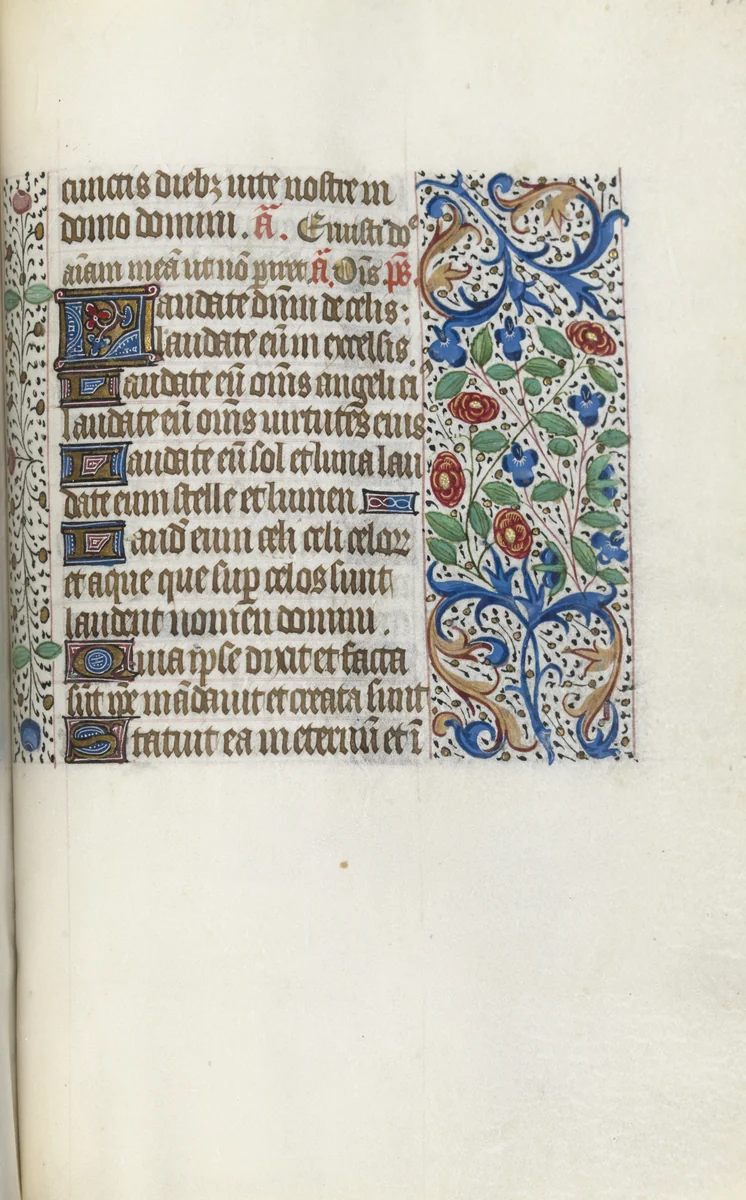 cunctis dieb; vite nostre in
domo domini. ā. Eruisti do͂e
aīam meā ut nō piret. ā. Oīs ps̄.
Laudate dn̄m de celis:
laudate eū in excelsis.
Laudate eū om̄s angeli ei⁹
laudate eū om̄s virtutes eius
Laudate eū sol et luna lau
date eum stelle et lumen
Laud eum celi celoꝝ
et aque que sup celos sunt
laudent nomen domini.
Quia ipse dixit et facta
sūt ip̄e mādavit et creata sunt
Statuit ea in eternū et ī